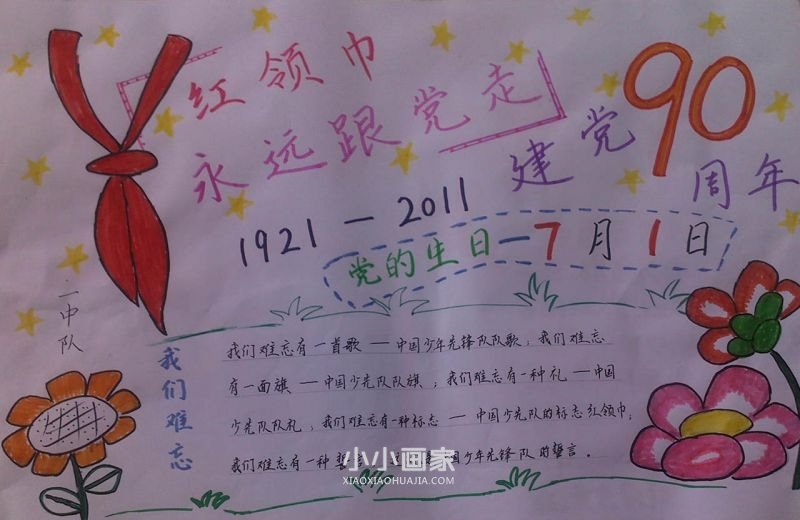 红领巾
永远跟党走
建党90周年
1921-2011
党的生日-7月1日
二中队
我们难忘
我们难忘有一首歌—中国少年先锋队队歌;我们难忘
有一面旗—中国少先队队旗;我们难忘有一种礼—中国
少先队队礼;我们难忘有一种标志—中国少先队的标志红领巾;
我们难忘有一种誓 国少年先锋队的誓言。
小小画家
XIAOXIAOHUAJIA.COM